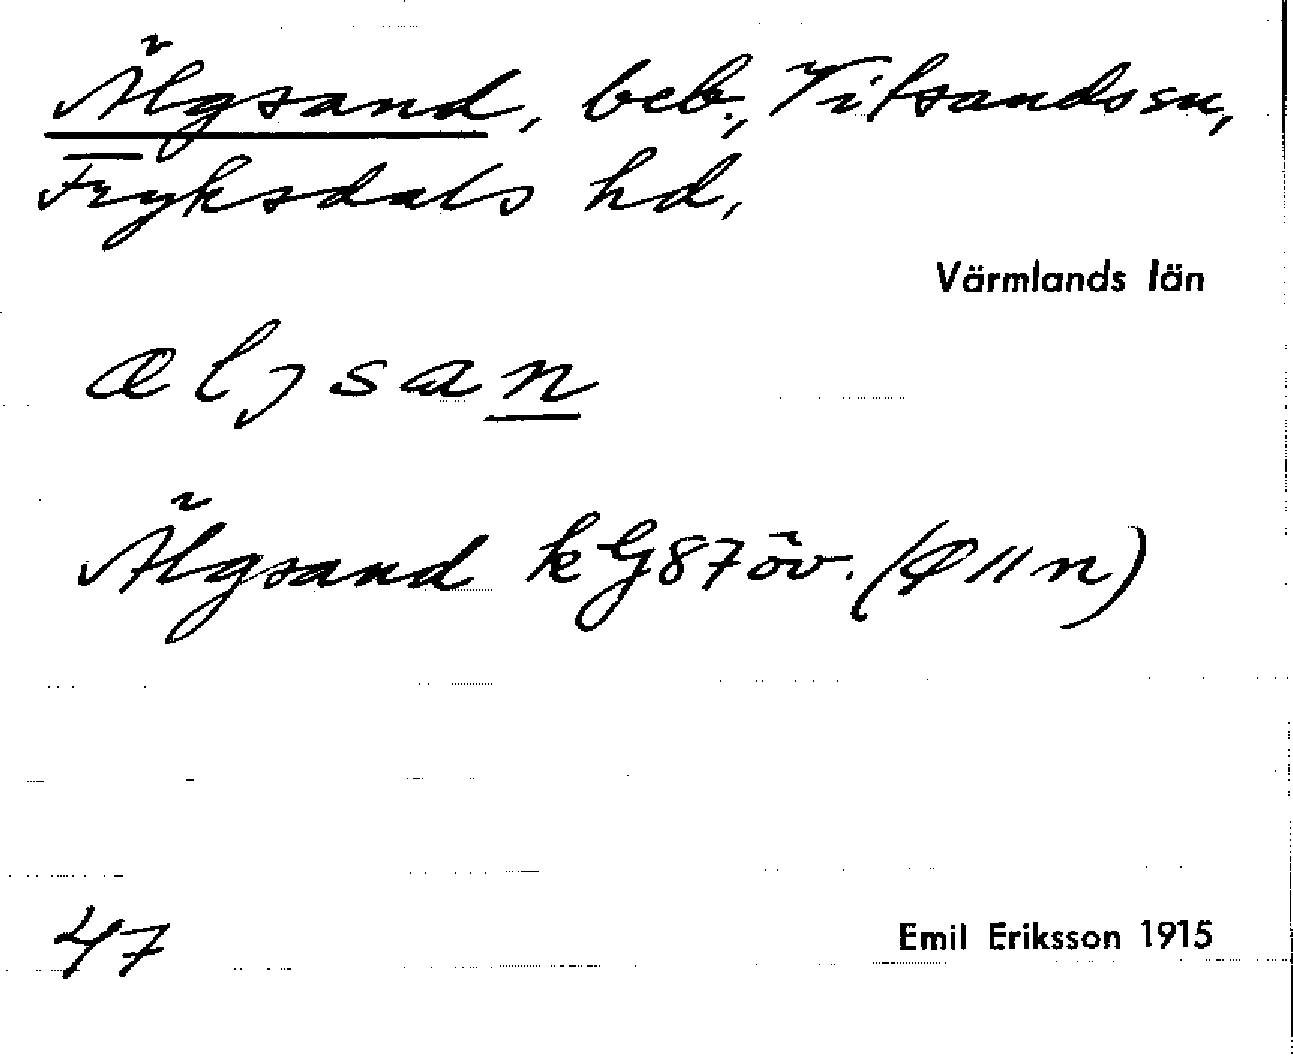 Älgsand, beb., Vitsandssn,
Fryksdals hd,
Värmlands län
æljsan
Älgsand kG87öv. (Q11n)
47
Emil Eriksson 1915